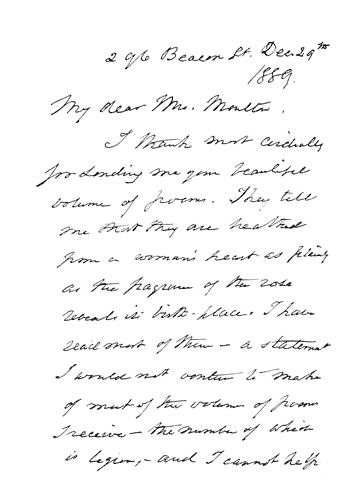 296 Beacon St. Dec. 29th
1889.
My dear Mrs. Moulton,
I thank most cordially
for sending me your beautiful
volume of poems. They tell
me that they are breathed
from a woman's heart as plainly
as the fragrance of the rose
reveals its birth-place. I have
read most of them – a statement
I would not venture to make
of most of the volumes of poems
I receive – the number of which
is legion, – and I cannot help